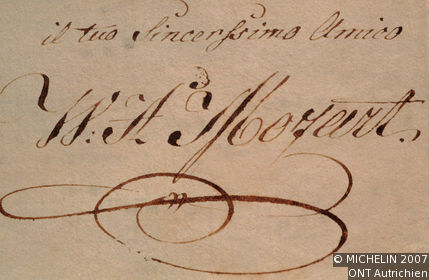 il tuo Sincerissimo Amico
W: A. Mozart.
© MICHELIN 2007
ONT Autrichien